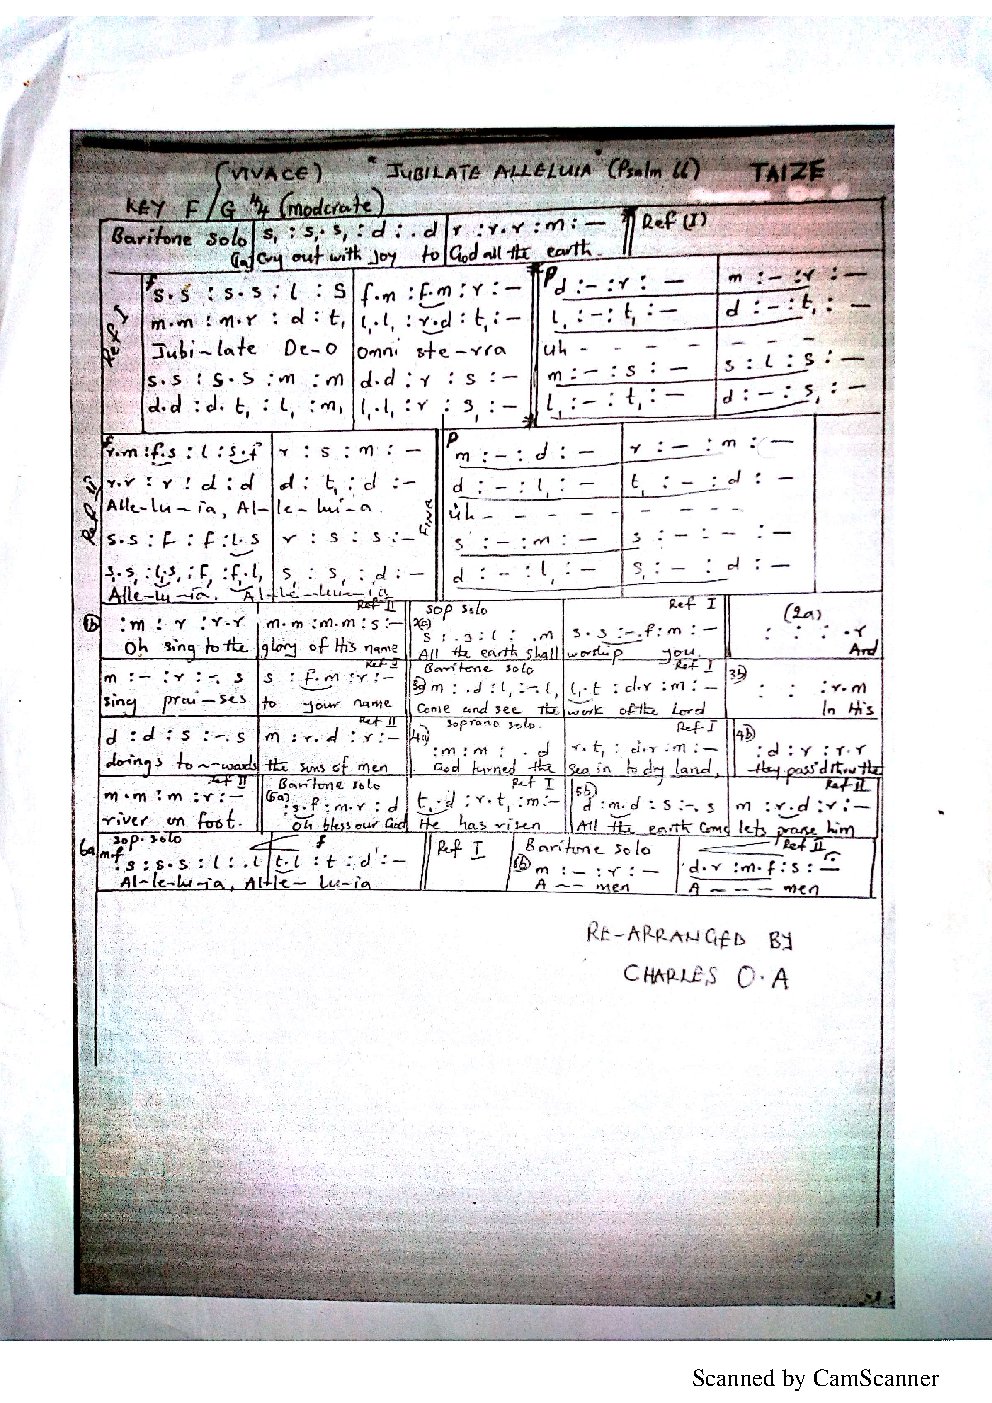 (VIVACE) "JUBILATE ALLELUIA" (Psalm 66) TAIZE
KEY F/G 4/4 (moderate)
Baritone solo | s, : s,. s, : d : . d | r : r.r : m : — || Ref (I)
(1a) Cry out with joy to | God all the earth.
Ref I
f s.s : s.s : l : s | f.m : f.m : r : — || p d : — : r : — | m : — : r : —
m.m : m.r : d : t, | l,.l, : r.d : t, : — || l, : — : t, : — | d : — : t, : —
Jubi-late De-o | Omni ste-rra || uh - - - - - - - -
s.s : s.s : m : m | d.d : r : s : — || m : — : s : — | s : l : s : —
d.d : d.t, : l, : m, | l,.l, : r : s, : — || l, : — : t, : — | d : — : s, : —
Ref II
f r.m : f.s : l : s.f | r : s : m : — || p m : — : d : — | r : — : m : —
r.r : r : d : d | d : t, : d : — || d : — : l, : — | t, : — : d : —
Alle-lu-ia, Al-le-lui-a. FINE || uh - - - - - - - -
s.s : f : f : l.s | r : s : s : — || s : — : m : — | s : — : — : —
s,.s, : l,.s, : f, : f,.l, | s, : s, : d : — || d : — : l, : — | s, : — : d : —
Alle-lu-ia. Al-le-lu-ia
Ref II | sop solo | Ref I | (2a)
(1b) : m : r : r.r | m.m : m.m : s : — || 2(a) s : .s : l : .m | s.s : -.f : m : — || : : : .r
Oh sing to the | glory of His name || All the earth shall | worship you. || And
Ref I | Baritone solo | Ref I
m : — : r : -. s | s : f.m : r : — || 3a m : .d : l, : -.l, | l,.t : d.r : m : — || 3b) : : : r.m
sing prai-ses | to your name || Come and see the | work of the Lord || In His
Ref II | soprano solo. | Ref I
d : d : s : -. s | m : r.d : r : — || 4a) : m : m : . d | r.t, : d.r : m : — || 4b) : d : r : r.r
doings to-wards | the sons of men || God turned the | sea in to dry land, || they pass'd throw the
Ref II | Baritone solo | Ref I | Ref II
m.m : m : r : — | (5a) : s.f : m.r : d | t,.d : r.t, : m : — || 5b) d : m.d : s : -. s | m : r.d : r : —
river on foot. | Oh bless our God | He has risen || All the earth come | lets praise him
6a sop. solo f | Ref I | Baritone solo | Ref II
mf : s : s.s : l : .l | t.l : t : d' : — || (6b) m : — : r : — | d.r : m.f : s : —
Al-le-lu-ia, Al-le- lu-ia || A - - men | A - - - men
RE-ARRANGED BY
CHARLES O.A
Scanned by CamScanner